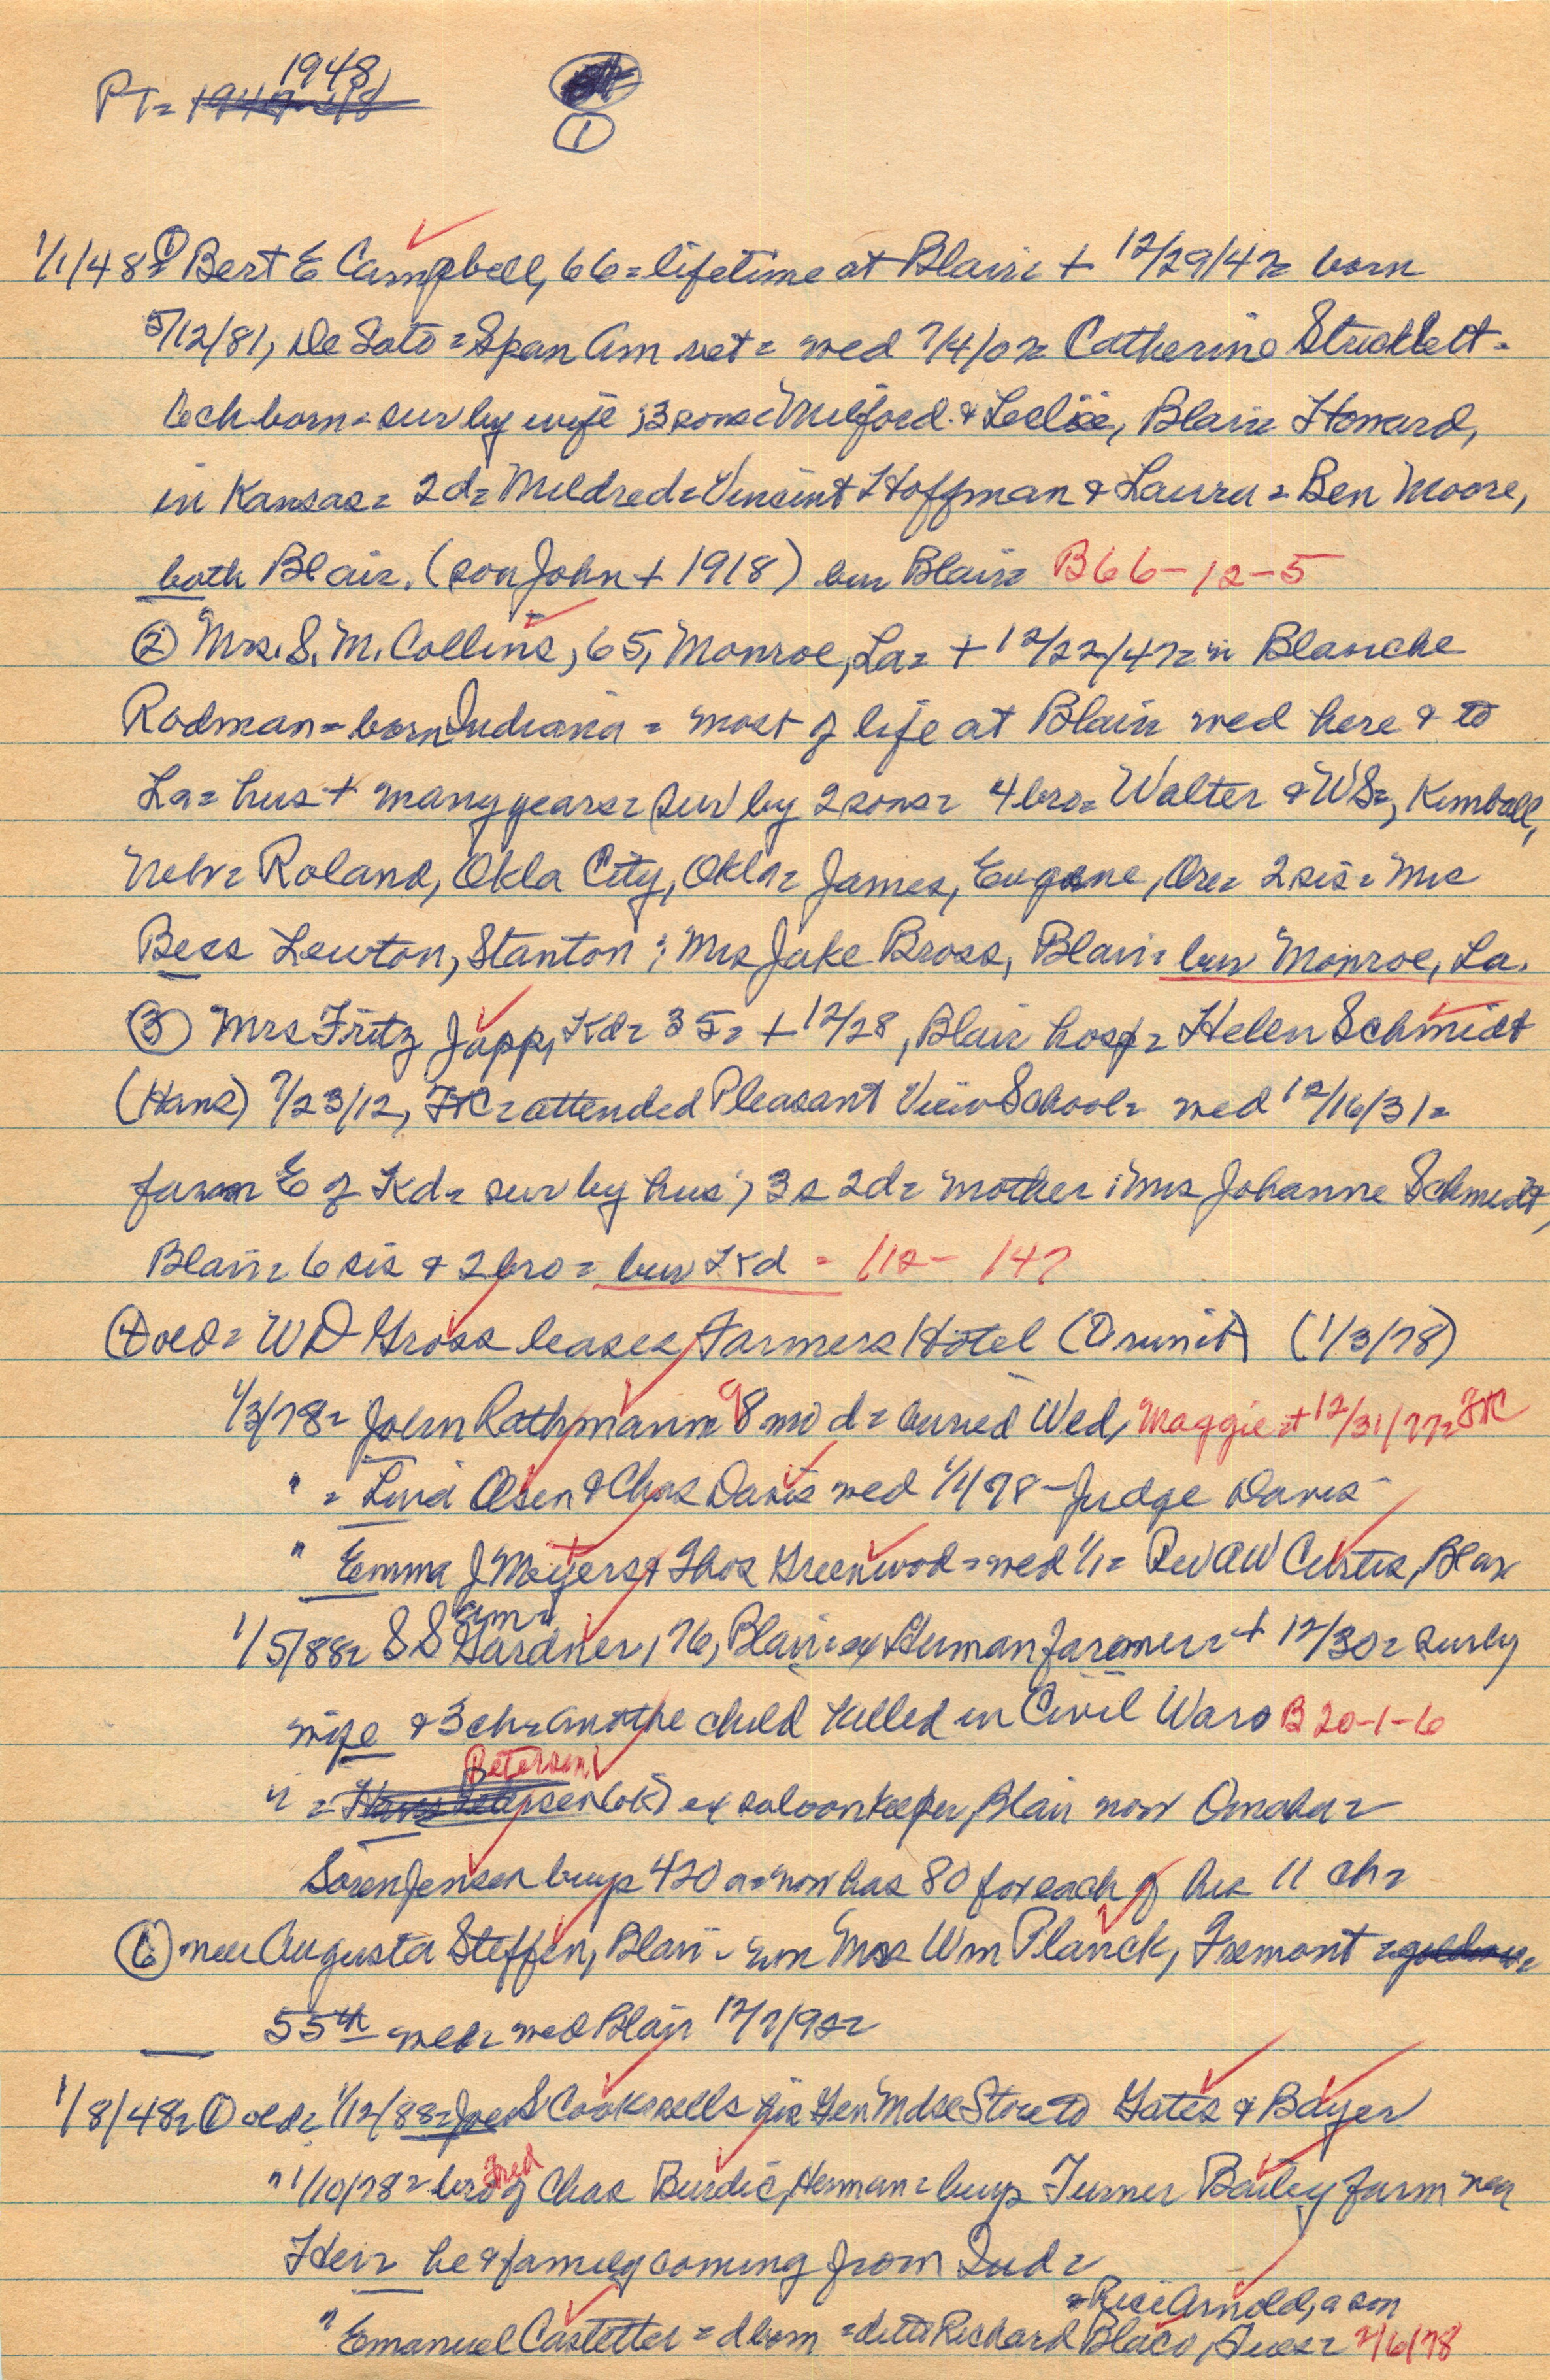 PT= 1948
1
1/1/48= ① Bert E Campbell, 66=lifetime at Blair= + 12/29/47= born
5/12/81, De Soto=Span Am vet= wed 7/4/07= Catherine Stricklett=
6ch born=sur by wife ; 3 sons=Milford & Leslie, Blair= Howard,
in Kansas= 2d= Mildred=Vincent Hoffman & Laura=Ben Moore,
both Blair. (son John + 1918) bur Blair= B66-12-5
② Mrs. S. M. Collins, 65, Monroe, La= + 12/22/47= n Blanche
Rodman=born Indiana= most of life at Blair= wed here & to
La= hus + many years= sur by 2 sons= 4 bro= Walter & WS=, Kimball,
Neb= Roland, Okla City, Okla= James, Eugene, Ore= 2 sis= Mrs
Bess Lewton, Stanton ; Mrs Jake Bross, Blair= bur Monroe, La.
③ Mrs Fritz Japp, Kd= 35= + 12/28, Blair hosp= Helen Schmidt
(Hans) 7/23/12, FtC=attended Pleasant View School= wed 12/16/31=
farm E of Kd= sur by hus ; 3s 2d= mother ; Mrs Johanne Schmidt,
Blair= 6 sis & 2 bro= bur Kd = 112- 147
④ old= WD Gross leases Farmers Hotel (1/3/78)
1/3/78= John Rathmann 8 mo d= buried Wed, Maggie=+ 12/31/77=FtC
" = Olsen & Chas Davis wed 1/1/78-Judge Davis
" Emma J Meyers & Thos Greenwood=wed 1/1= Rev AW Curtis, Blair
Am=
1/5/88= SS Gardner, 76, Blair=ex Herman farmer=+ 12/30= sur by
wife & 3 ch= another child killed in Civil War= B 20-1-6
Peterson
" = (ok) ex saloonkeeper, Blair now Omaha=
Soren Jensen buys 420 a=now has 80 for each of his 11 ch=
⑥ nee Augusta Steffen, Blair= Mrs Wm Planck, Fremont =
55th wed= wed Blair 12/7/92=
1/8/48= ① old= 1/12/88= S Cook sells his Gen Mdse Store to Gates & Bayer
" 1/10/78= bro of Fred Chas Burdic, Herman= buys Turner Bailey farm near
Her= he & family coming from Ind=
=Rice Arnold, a son
" Emanuel Castetter=d born =ditto Richard Blaco, 2/6/78